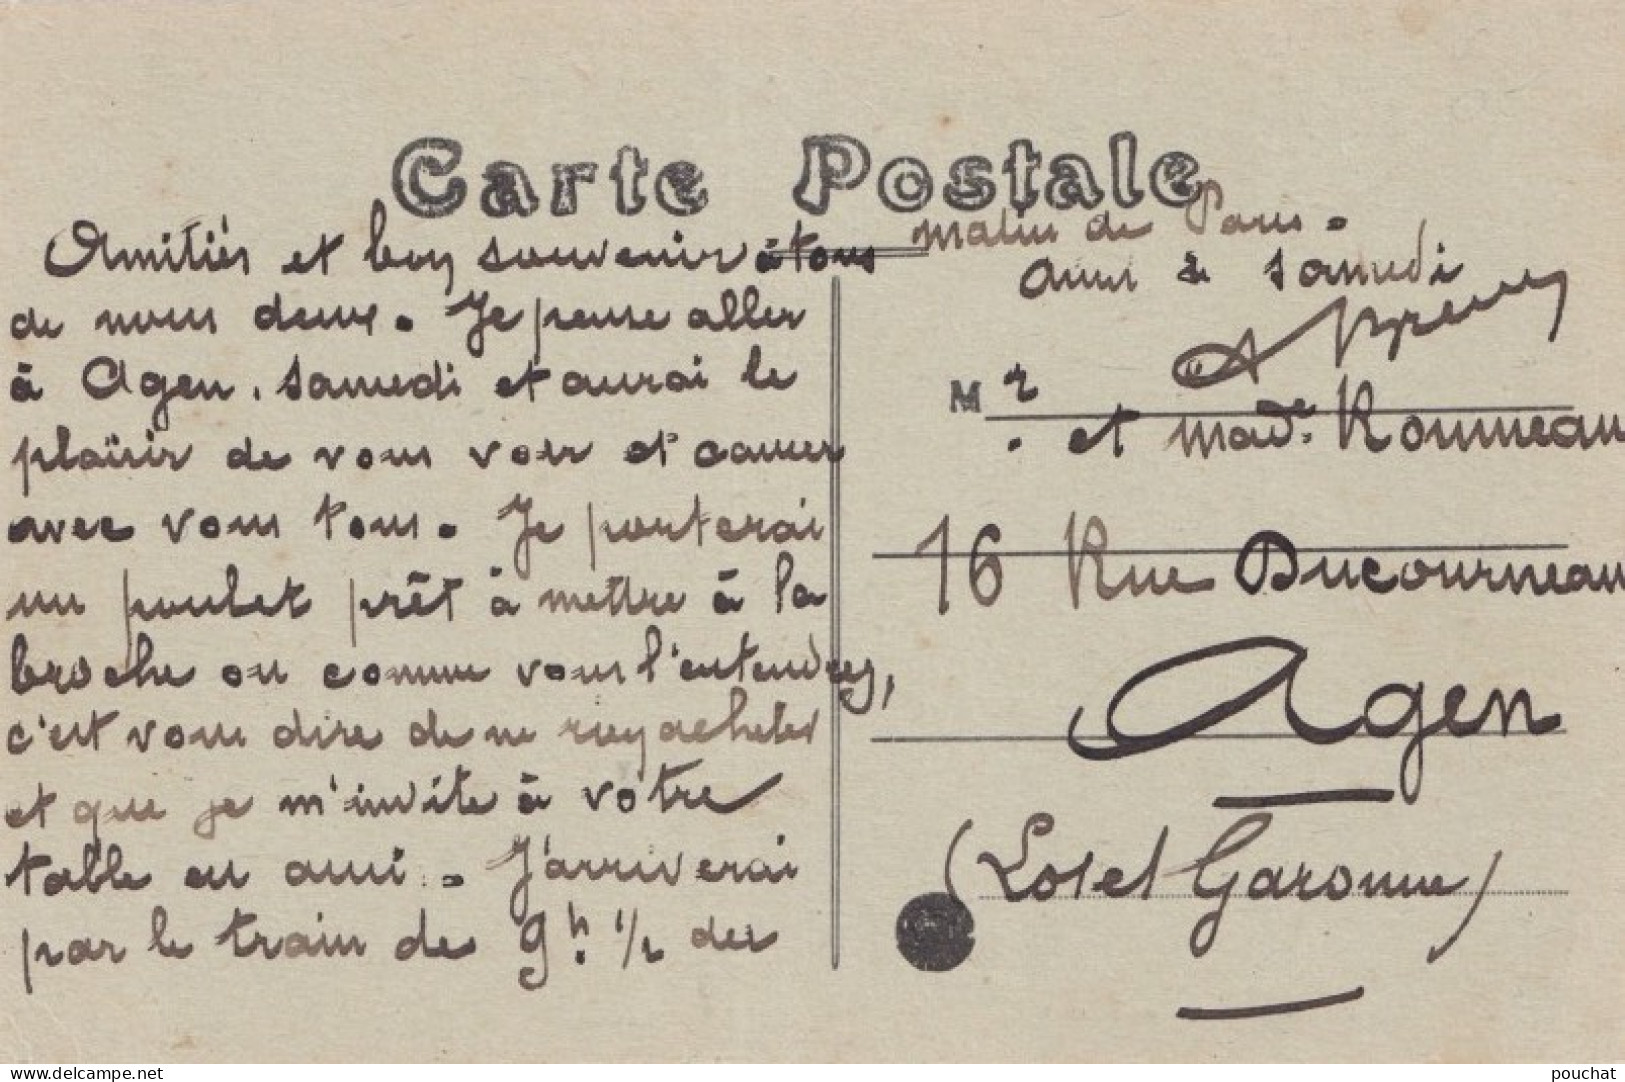 Carte Postale
Amitiés et bon souvenir à tous
de nous deux. Je pense aller
à Agen, samedi et aurai le
plaisir de vous voir et causer
avec vous tous. Je porterai
un poulet prêt à mettre à la
broche ou comme vous l'entendrez,
c'est vous dire de ne rien acheter
et que je m'invite à votre
table en ami. J'arriverai
par le train de 9h. 1/2 des
matin de Paris.
à samedi
M r
et Mad. Roumeau
16 Rue Ducourneau
Agen
(Lot et Garonne)
www.delcampe.net
pouchat